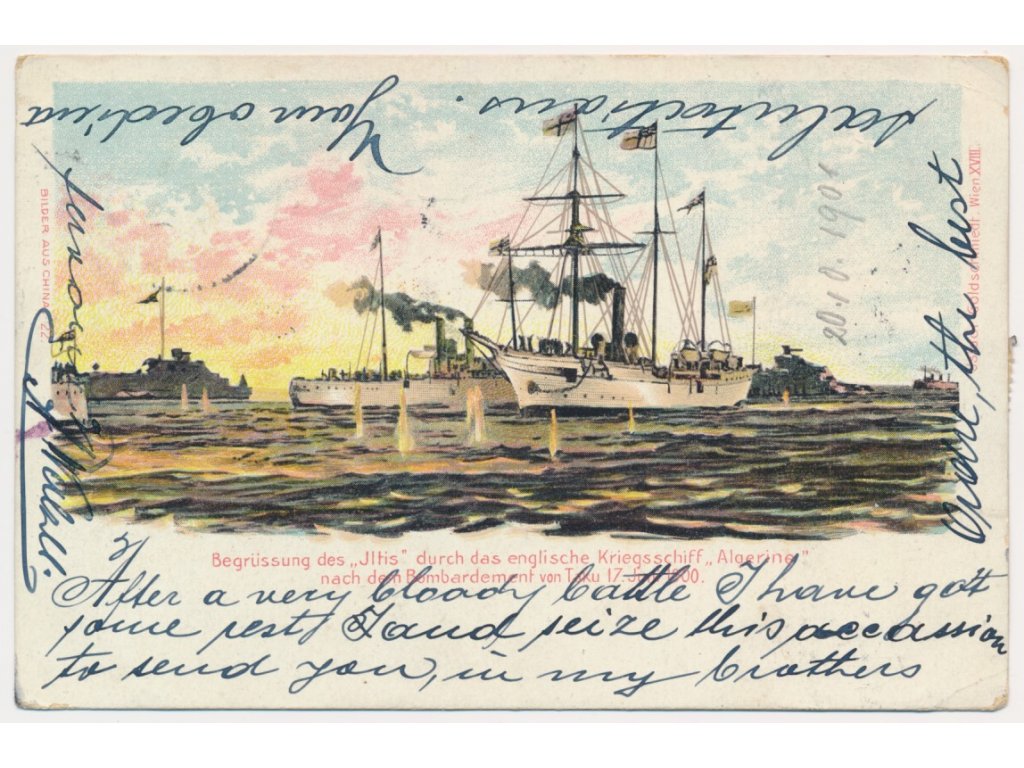 Begrüssung des „Jltis" durch das englische Kriegsschiff „Algerine"
nach dem Bombardement von Taku 17. Juni 1900.
After a very bloody battle I have got
some rest, I and seize this occassion
to send you, in my brothers
name, the best
salutations.
Your obediend
servant
BILDER AUS CHINA 22
Wien XVIII.
20.10.1901